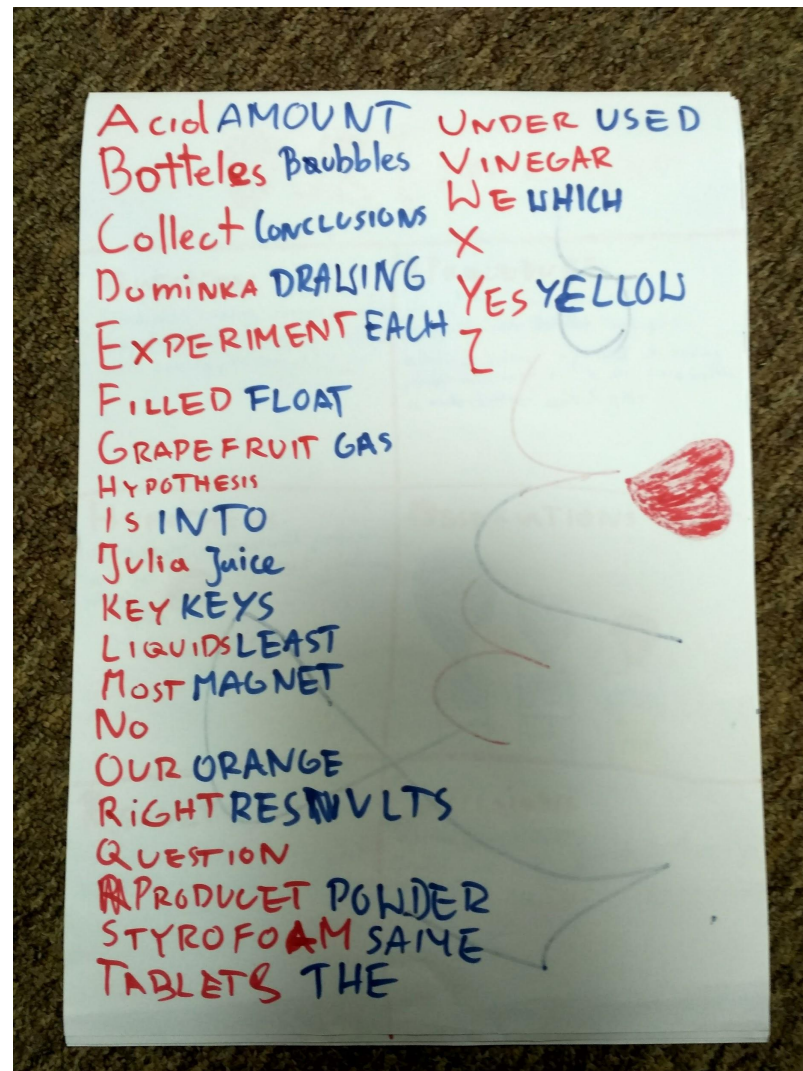 Acid AMOUNT
Botteles Baubbles
Collect CONCLUSIONS
DominKA DRAWING
EXPERIMENT EACH
FILLED FLOAT
GRAPEFRUIT GAS
HYPOTHESIS
IS INTO
Julia Juice
KEY KEYS
LIQUIDS LEAST
MOST MAGNET
NO
OUR ORANGE
RiGHT RESULTS
QUESTION
PRODUCET POWDER
STYROFOAM SAME
TABLETS THE
UNDER USED
VINEGAR
WE WHICH
X
YES YELLOW
Z